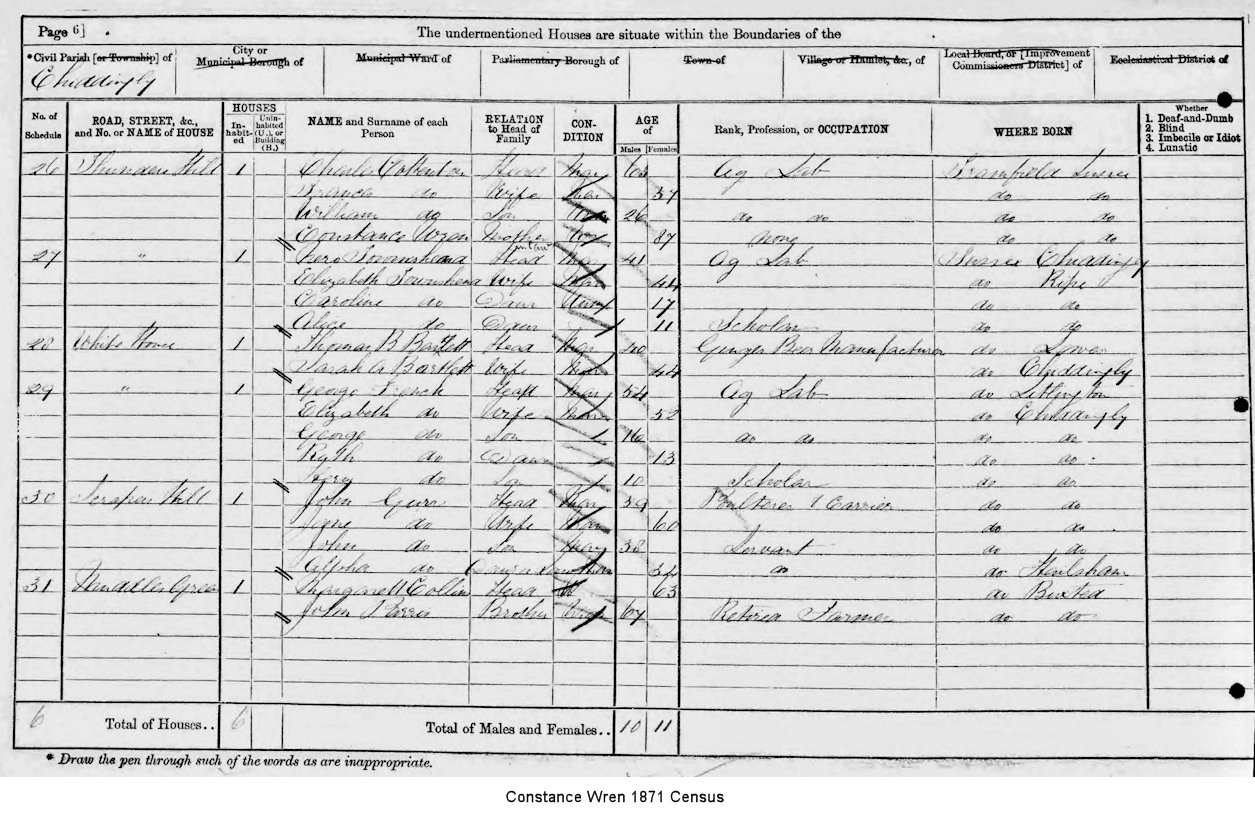 Page 6]
The undermentioned Houses are situate within the Boundaries of the
*Civil Parish [or Township] of
City or Municipal Borough of
Municipal Ward of
Parliamentary Borough of
Town of
Village or Hamlet, &c., of
Local Board, or [Improvement Commissioners District] of
Ecclesiastical District of
Chiddingly
No. of Schedule
ROAD, STREET, &c., and No. or NAME of HOUSE
HOUSES
In-habit-ed
Unin-habited (U.), or Building (B.)
NAME and Surname of each Person
RELATION to Head of Family
CON-DITION
AGE of
Males
Females
Rank, Profession, or OCCUPATION
WHERE BORN
Whether
1. Deaf-and-Dumb
2. Blind
3. Imbecile or Idiot
4. Lunatic
26 Hill 1 Charles Mar 63 Ag Lab
do Wife Mar 57 do do
William do Son 26 do do do do
Constance Wren Mother in law 87 None do do
27 " 1 Townshend Head Mar 41 Ag Lab Sussex Chiddingly
Elizabeth Townshend Wife Mar 44 do Ripe
Caroline do Daur 17 do do
Alice do Daur 11 Scholar do do
28 White House 1 Thomas B Bartlett Head Mar 40 Ginger Beer Manufacturer do Lewes
Sarah A Bartlett Wife Mar 44 do Chiddingly
29 " 1 George French Head Mar 54 Ag Lab do Litlington
Elizabeth do Wife Mar 52 do Chiddingly
George do Son 16 do do do do
Ruth do Daur 13 do do
do Son 10 Scholar do do
30 Hill 1 John Guer Head Mar 59 Poulterer & Carrier do do
Jane do Wife Mar 60 do do
John do Son Mar 38 Servant do do
do do do Hailsham
31 Green 1 Margarett Collin Head 63 do Buxted
John Parris Brother 67 Retired Farmer do do
6 Total of Houses.. 6 Total of Males and Females.. 10 11
* Draw the pen through such of the words as are inappropriate.
Constance Wren 1871 Census